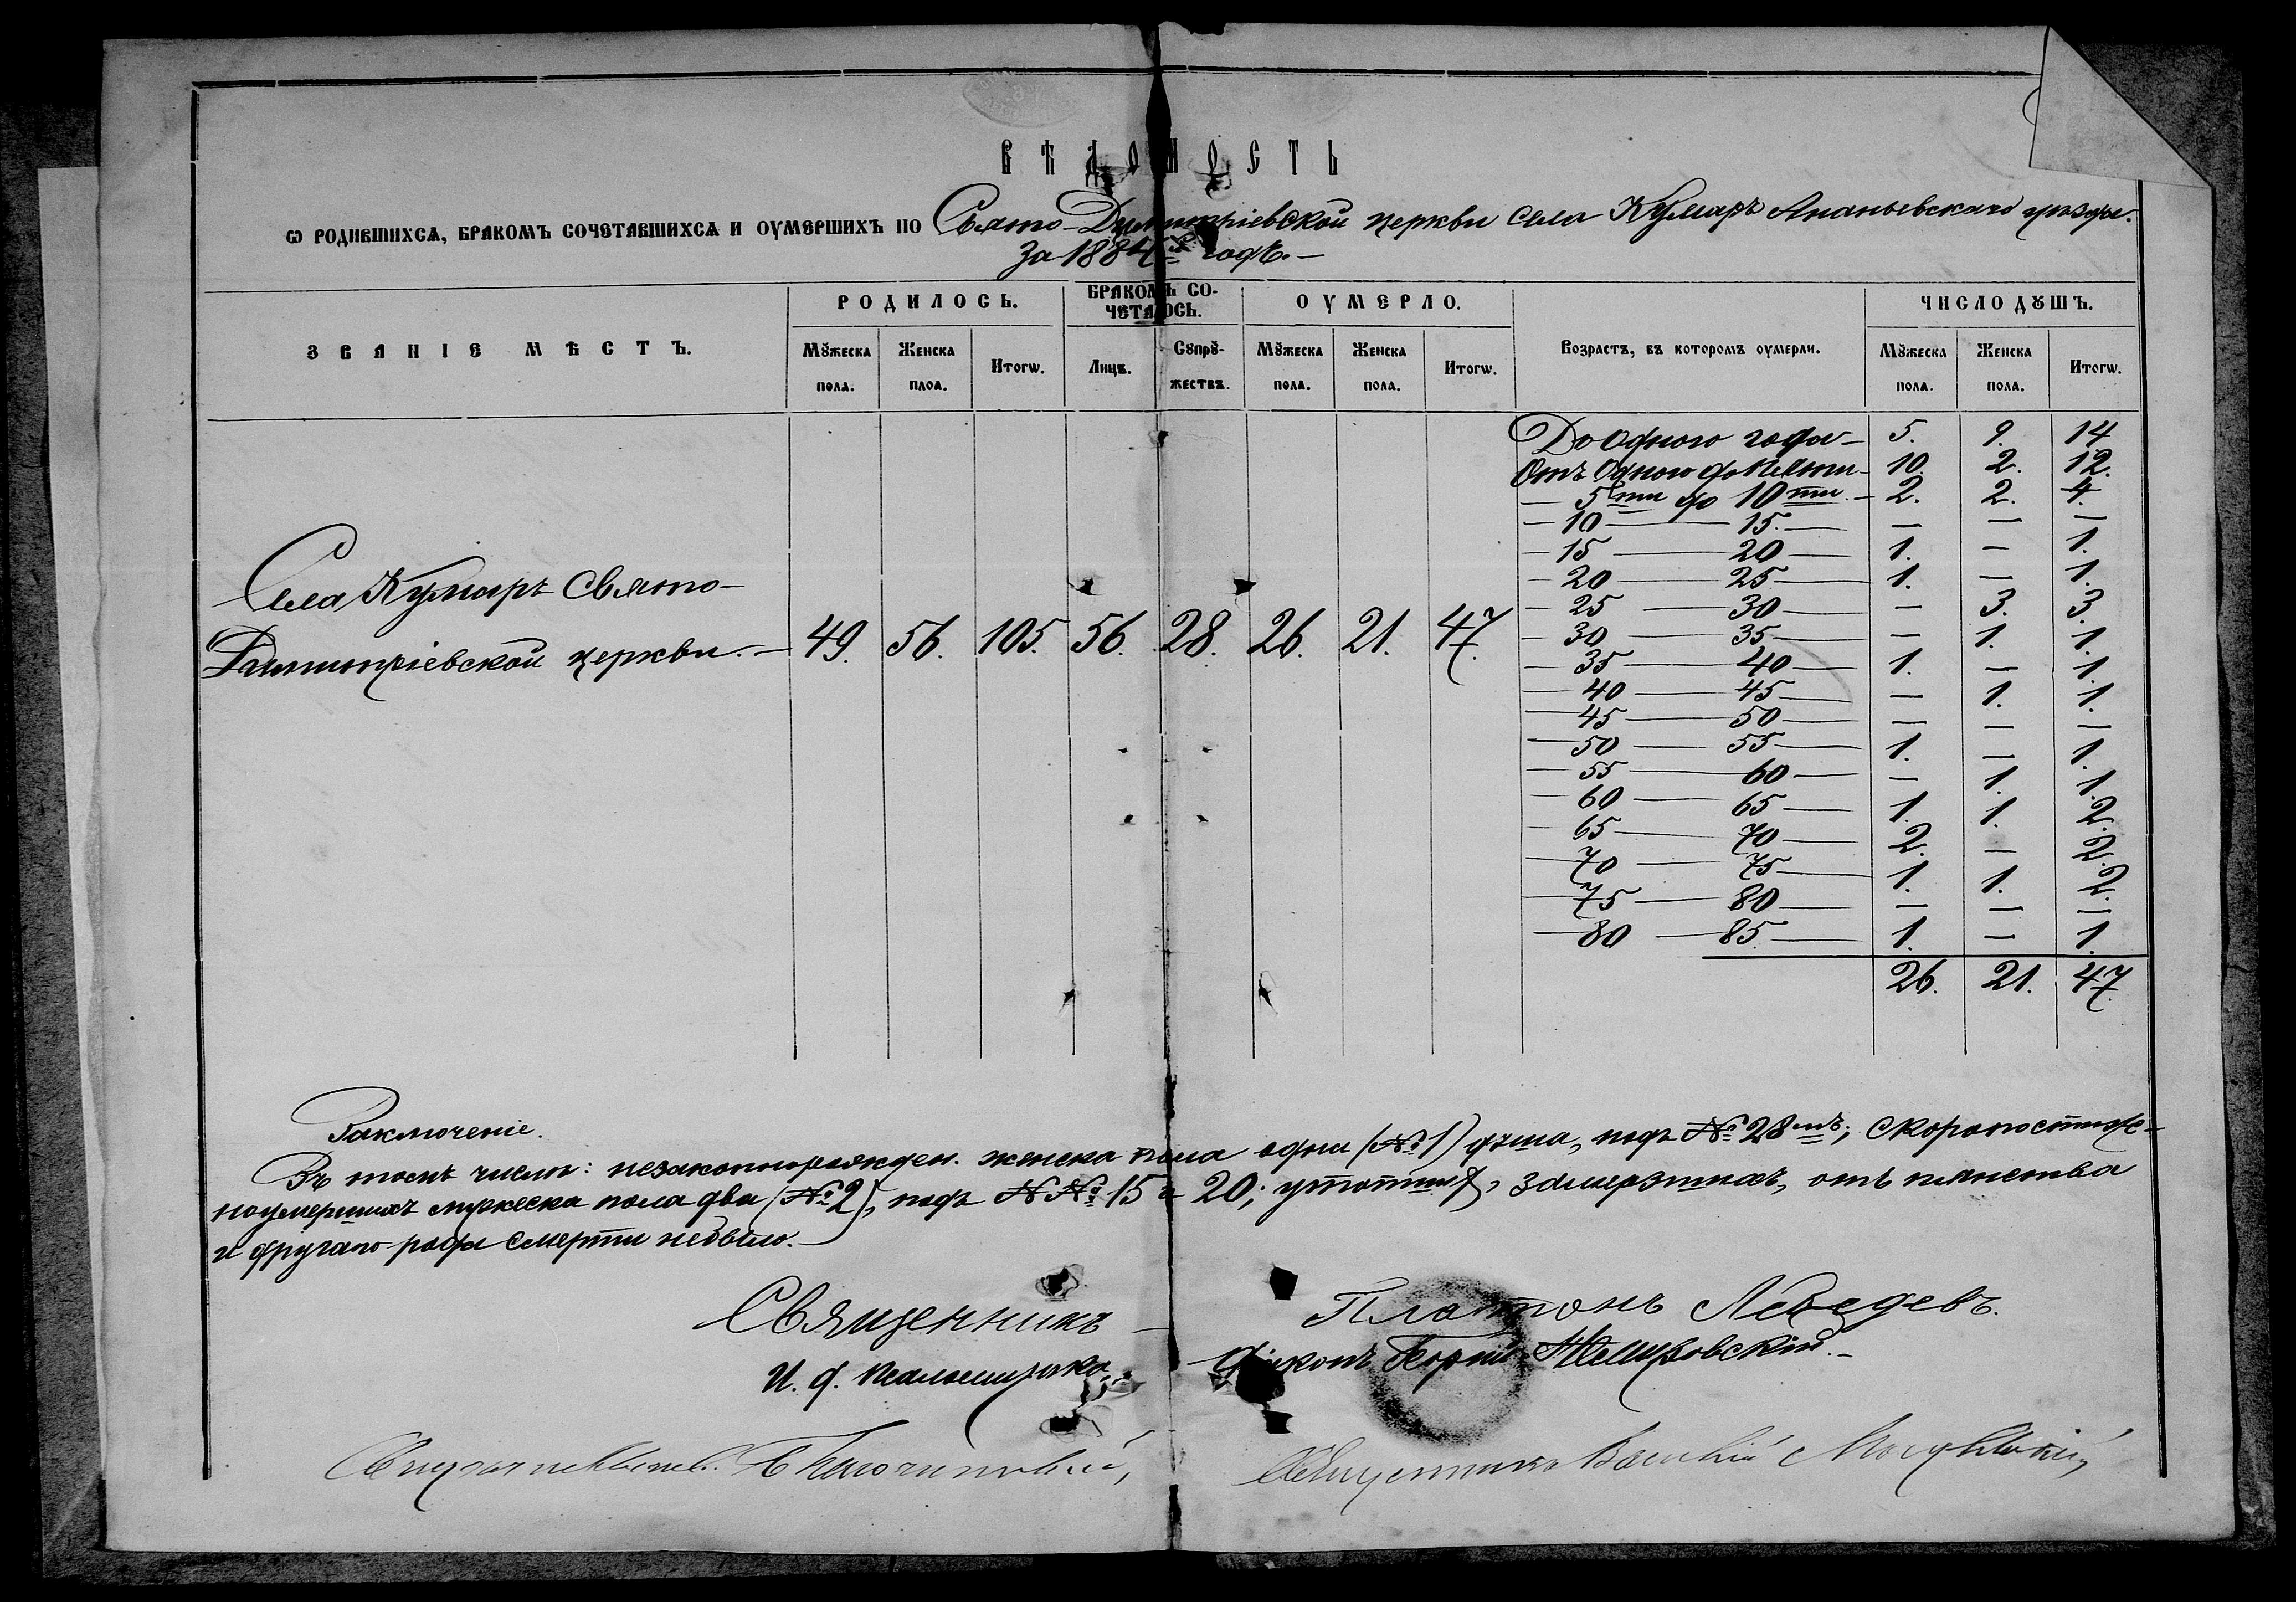 ВѢДОМОСТЬ
Ѡ РОДИВШИХСѦ, БРАКОМЪ СОЧЕТАВШИХСѦ И ОУМЕРШИХЪ ПО Свято-Димитріевской церкви села Кумаръ Ананьевскаго уѣзда.
За 1884й годъ.—
ЗВАНІЕ МѢСТЪ. РОДИЛОСЬ. БРАКОМЪ СО- ОУМЕРЛО. Возрастъ, въ которомъ оумерли. ЧИСЛО ДꙊШЪ.
ЧЕТАЛОСЬ.
МꙊжеска Женска Итогѡ. Лицъ. СꙊпрꙊ- МꙊжеска Женска Итогѡ. МꙊжеска Женска Итогѡ.
пола. плоа. жествъ. пола. пола. пола. пола.
До одного года — 5. 9. 14
Отъ одного до пяти — 10. 2. 12.
— 5ти до 10ти. — 2. 2. 4.
— 10 — 15. — — — —
— 15 — 20 — 1. — 1.
— 20 — 25 — 1. — 1.
— 25 — 30 — — 3. 3.
— 30 — 35 — — 1. 1.
— 35 — 40 — 1. — 1.
— 40 — 45 — — 1. 1.
— 45 — 50 — — — —
— 50 — 55 — 1. — 1.
— 55 — 60 — — 1. 1.
— 60 — 65 — 1. 1. 2.
— 65 — 70 — 2. — 2.
— 70 — 75 — 1. 1. 2.
— 75 — 80 — — — —
— 80 — 85. — 1. — 1.
26. 21. 47.
Села Кумаръ Свято-
Димитріевской церкви. — 49. 56. 105. 56. 28. 26. 21. 47.
Заключеніе.
Въ томъ числѣ: незаконнорожден. женска пола одна (№ 1) душа, подъ № 28мъ; скоропостиж-
ноумершихъ мужеска пола два (№ 2), подъ №№ 15 и 20; утопш, замерзшихъ, отъ пьянства
и другаго рода смерти небыло.—
Священникъ — Платонъ Лебедевъ.
И. д. псаломщика, Діаконъ
Священникъ Василій